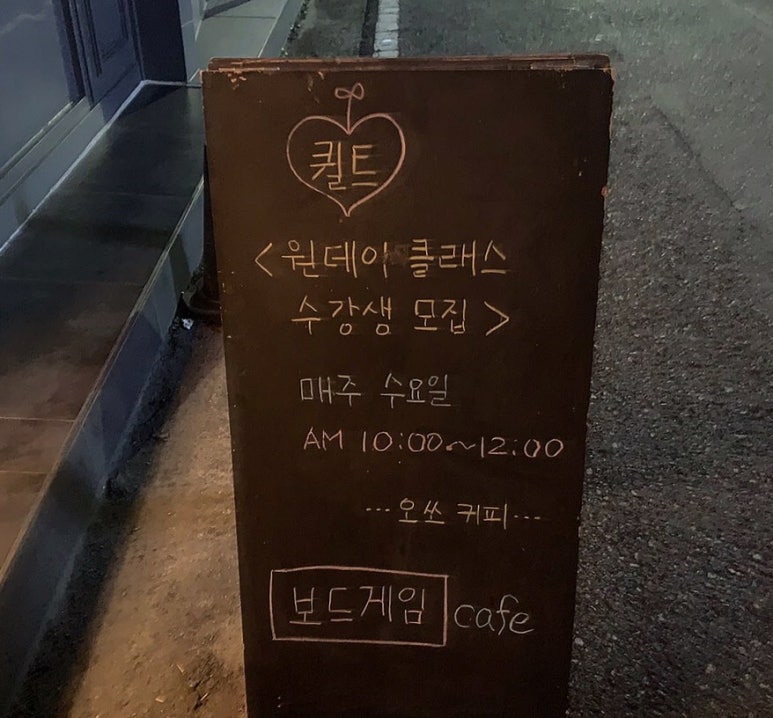 퀼트
<원데이 클래스
수강생 모집>
매주 수요일
AM 10:00~12:00
...오쏘 커피...
보드게임 cafe